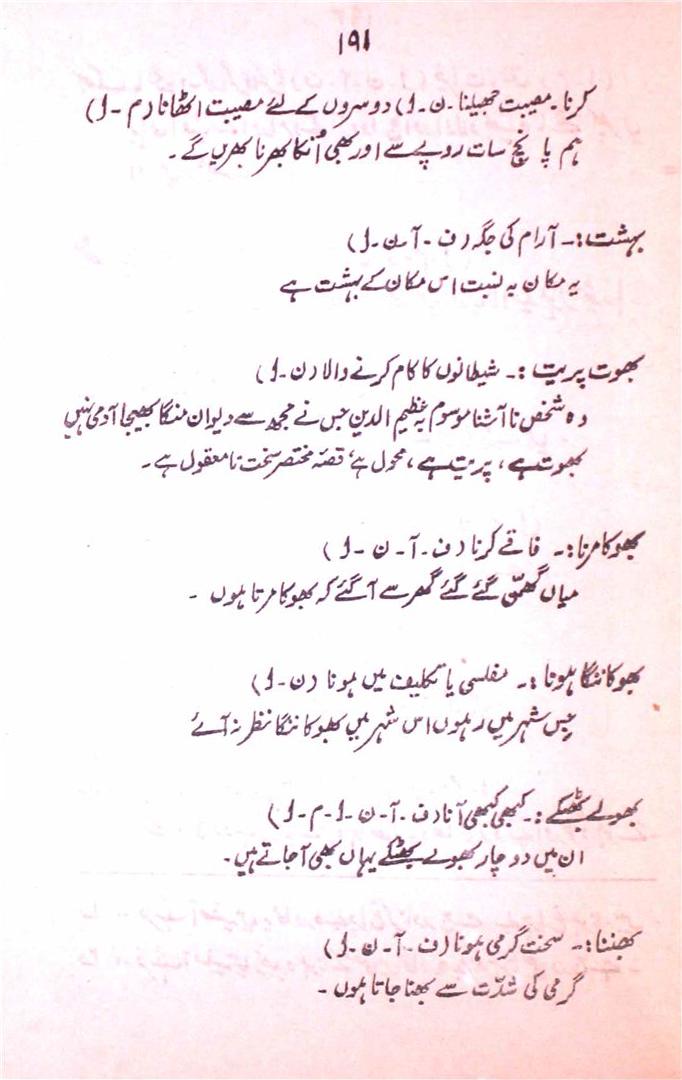 ۱۹۱
کرنا۔ مصیبت جھیلنا۔ ن۔ ل) دوسروں کے لئے مصیبت اٹھانا (م۔ ل)
ہم پانچ سات روپے سے اور بھی اُنکا بھرنا بھریں گے۔
بہشت:۔ آرام کی جگہ (ف۔ آ۔ ن۔ ل)
یہ مکان بہ نسبت اس مکان کے بہشت ہے
بھوت پریت:۔ شیطانوں کا کام کرنے والا (ن۔ ل)
وہ شخص نا آشنا موسوم بہ عظیم الدین جس نے مجھ سے دیوان منگا بھیجا آدمی نہیں
بھوت ہے، پریت ہے، محول ہے، قصہ مختصر سخت نا معقول ہے۔
بھوکا مرنا:۔ فاقے کرنا (ف۔ آ۔ ن۔ ل)
میاں گھمّن گئے گئے گھر سے آ گئے کہ بھوکا مرتا ہوں ۔
بھوکا ننگا ہونا:۔ مفلسی یا تکلیف میں ہونا (ن۔ ل)
جس شہر میں رہوں اس شہر میں بھوکا ننگا نظر نہ آئے
بھولے بھٹکے:۔ کبھی کبھی آنا (ف۔ آ۔ ن۔ ل۔ م۔ ل)
ان میں دو چار بھولے بھٹکے یہاں بھی آ جاتے ہیں۔
بھننا:۔ سخت گرمی ہونا (ف۔ آ۔ ن۔ ل)
گرمی کی شدّت سے بھنا جاتا ہوں ۔